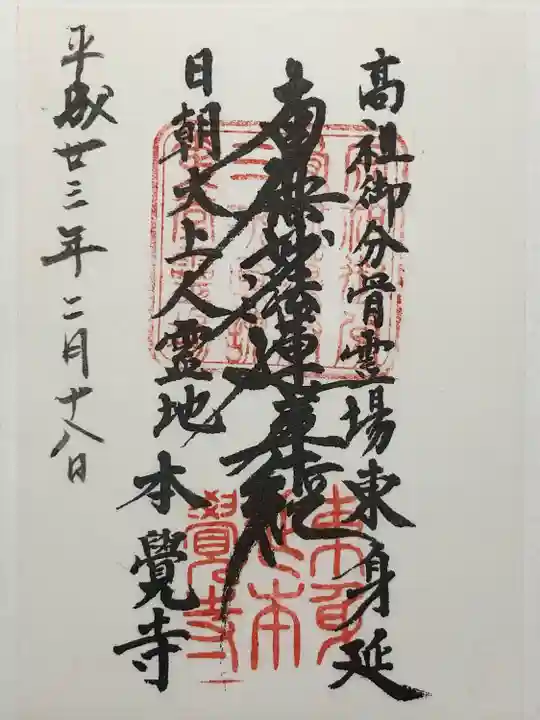 高祖御分骨霊場東身延
南無妙法蓮華経
日朝大上人霊地
本覺寺
平成廿三年二月十八日
東身
延本
覺寺